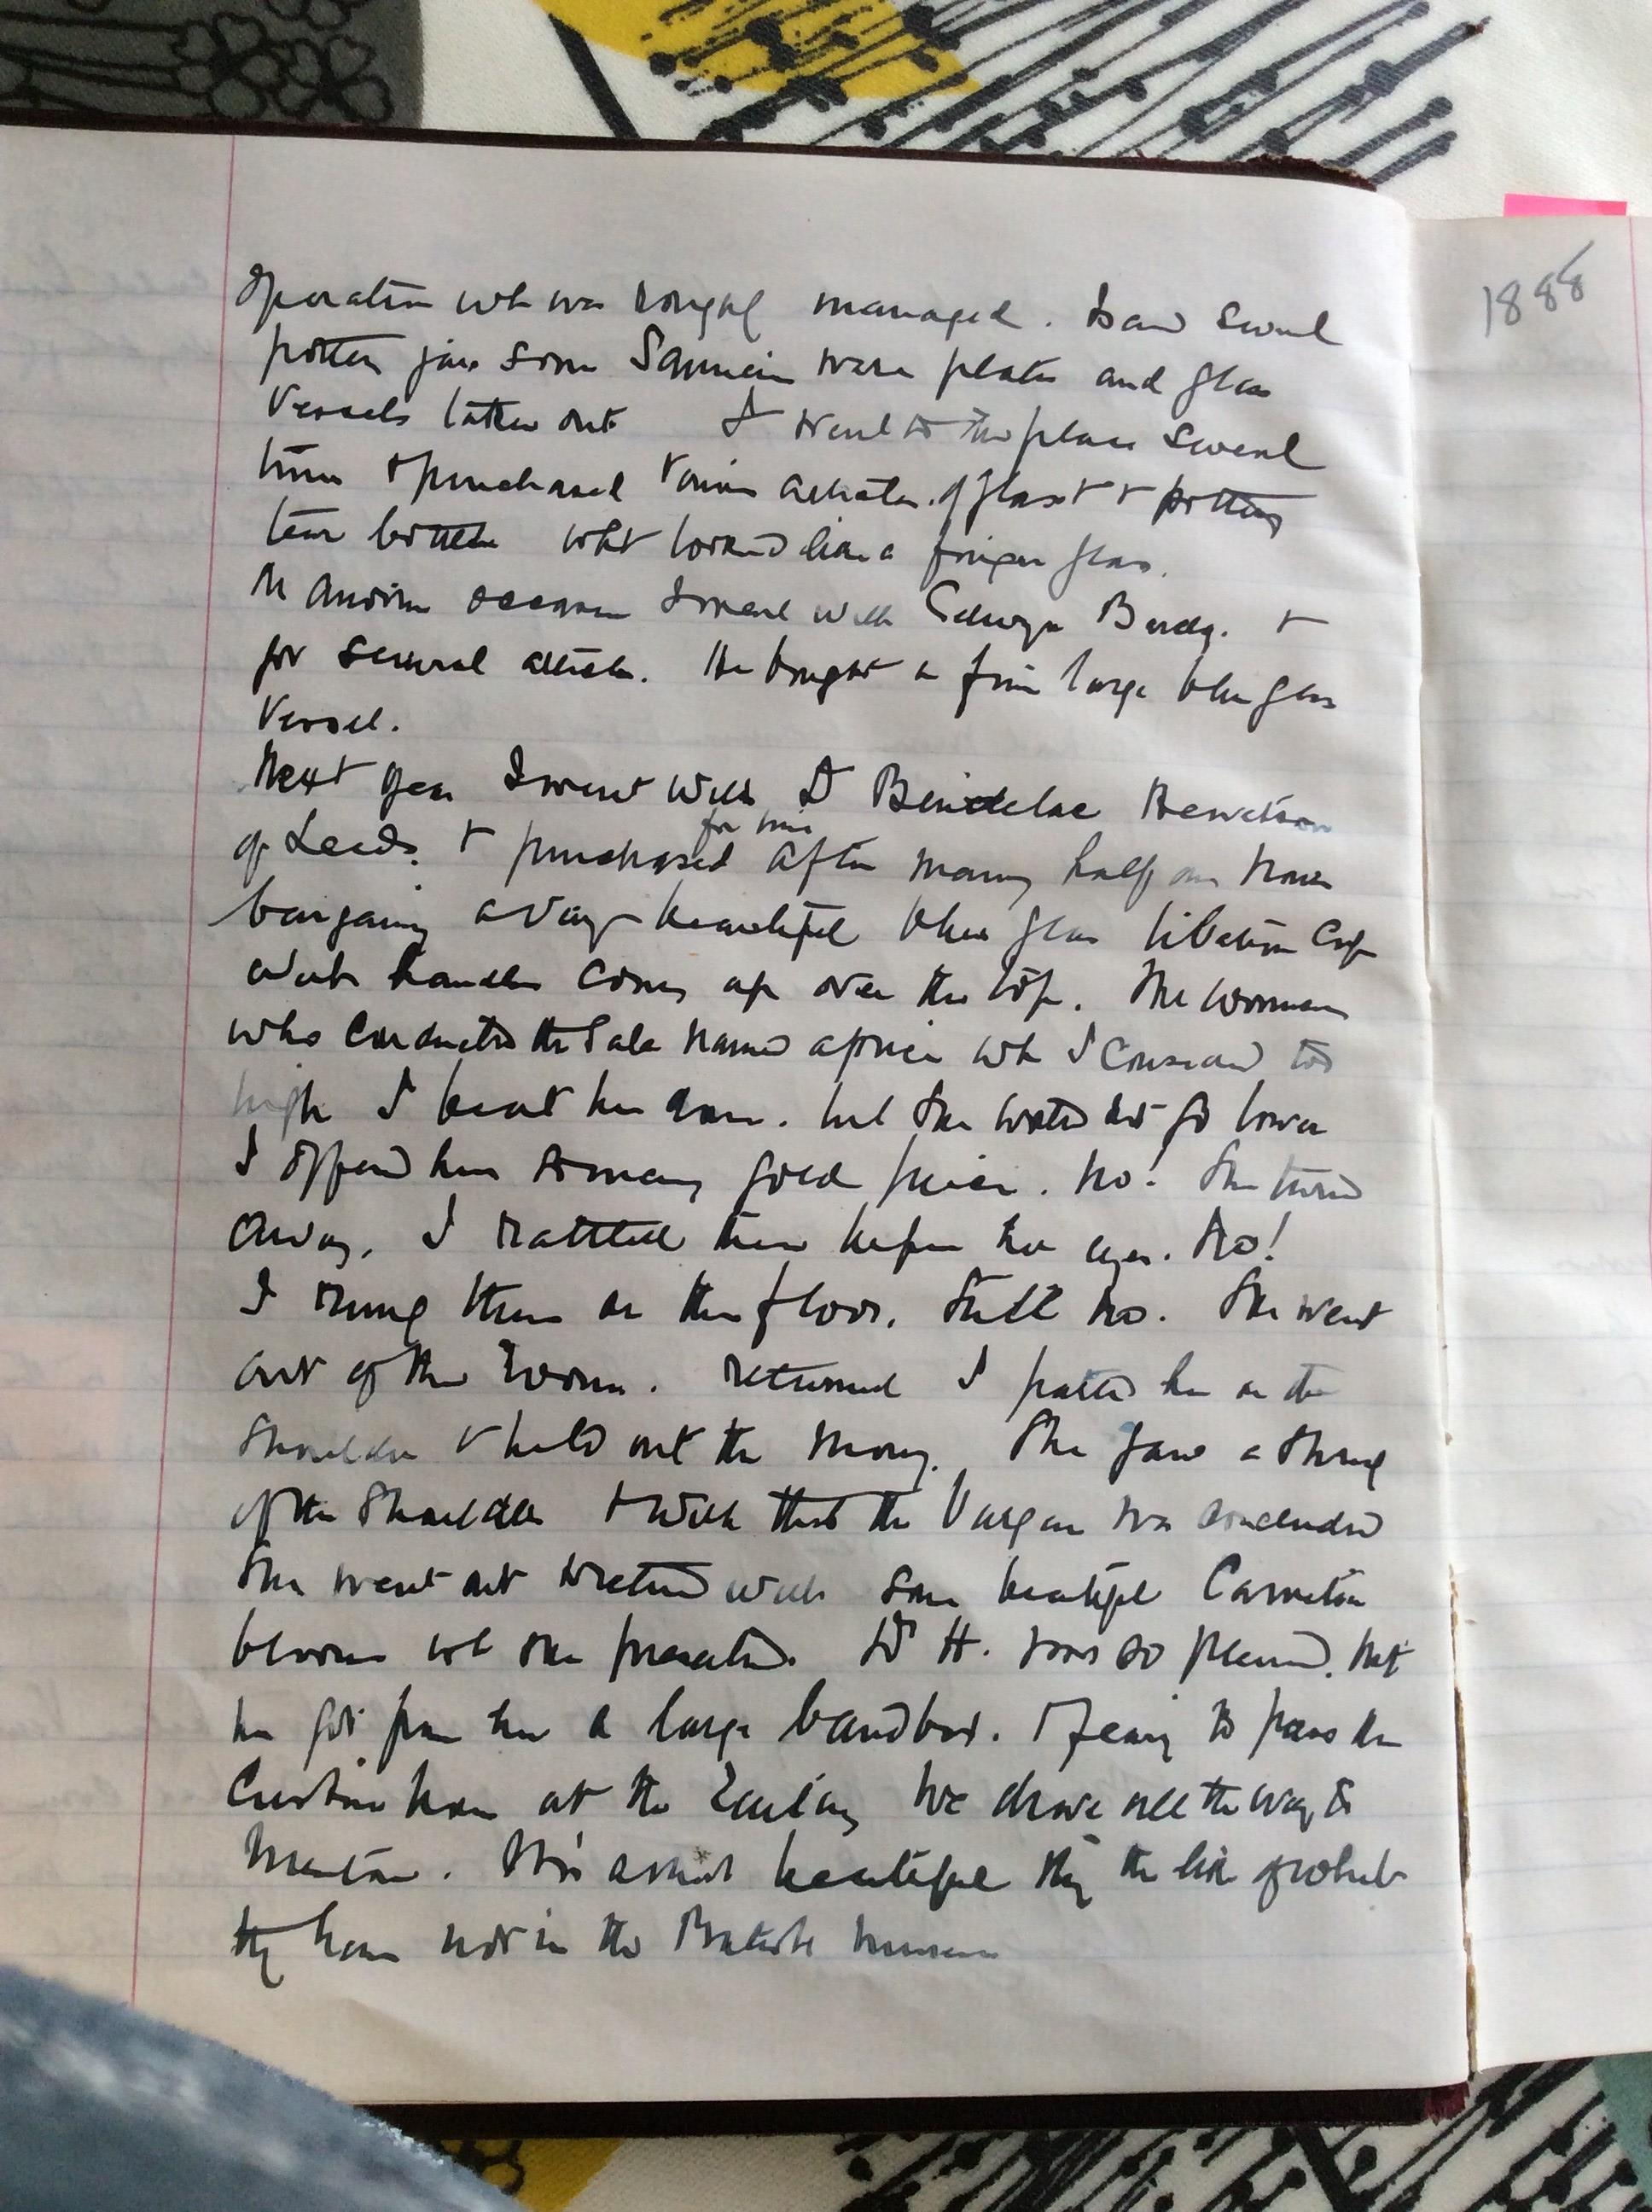 operation wh was roughly managed. I saw several
pottery jars some Samian ware plates and glass
vessels taken out I went to the place several
times & purchased various articles of glass & pottery
tear bottles what looked like a finger glass.
On another occasion I went with Selwyn &
for several articles. He bought a fine large blue glass
vessel.
Next year I went with Dr Bendelac Hewetson
of Leeds. & purchased for him after many half an hours
bargaining a very beautiful blue glass libation Cup
with handles coming up over the top. The woman
who conducted the Sale named a price wh I considered too
high I beat her down. but she would not go lower
I offered her so many gold pieces. No! She turned
away. I rattled them before her eyes. No!
I rung them on the floor. Still no. She went
out of the room. returned I patted her on the
shoulder & held out the money. She gave a shrug
of the shoulders & with that the bargain was concluded
She went out & returned with some beautiful Carnation
blooms wh she presented. Dr H. was so pleased. that
he got from her a large bandbox. & fearing to pass the
Custom house at the Railway we drove all the way to
Mentone. It is a most beautiful thing the like of which
they have not in the British Museum
1888